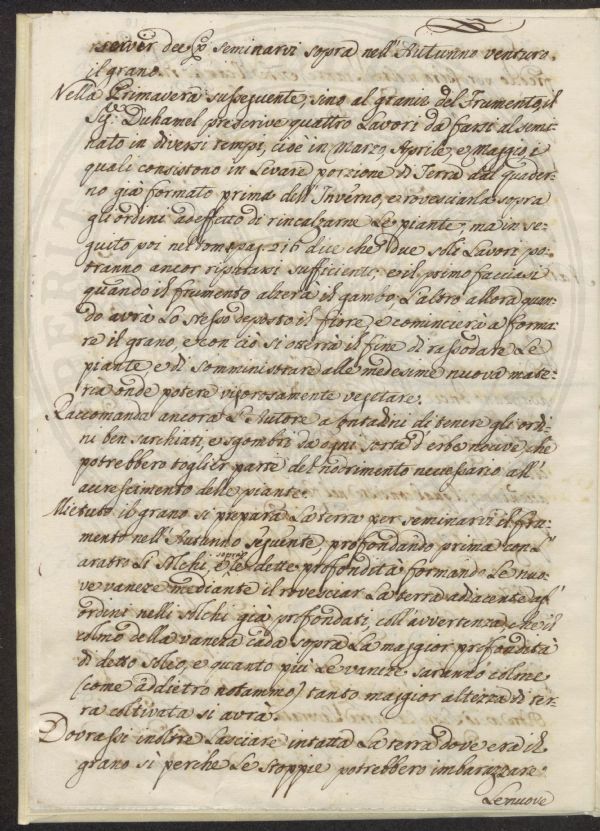 sciver dee pº seminarvi sopra nell'Autunno venturo
il grano.
Nella Primavera susseguente, sino al granir del Frumento, il
Sigr. Duhamel prescrive quattro Lavori da farsi al semi-
nato in diversi tempi, cioè in Marzo, Aprile, e Maggio, i
quali consistono in Levare porzione di Terra dal quader-
no già formato prima dell'Inverno, e rovesciarla sopra
gli ordini ad effetto di rincalzarne Le piante, ma in se-
guito poi nel tom: pag: 216 dice che due soli Lavori po-
tranno ancor riputarsi sufficienti, e il primo facciasi
quando il frumento alzerà il gambo, L'altro allora quan-
do avrà Lo stesso deposto il fiore, e comincierà a forma-
re il grano, e con ciò si otterrà il fine di rassodare Le
piante, e di somministrare alle medesime nuova mate-
ria onde potere vigorosamente vegetare.
Raccomanda ancora L'Autore a Contadini di tenere gli ordi-
ni ben sarchiati, e sgombri da ogni sorta d'erbe nocive che
potrebbero toglier parte del nodrimento necessario all'
accrescimento delle piante.
Mietuto il grano si prepara La terra per seminarvi il fru-
mento nell'Autunno seguente, profondando prima con L'
aratro Li solchi, e le sopra dette profondità formando Le nuo-
ve vaneze mediante il rovesciar La terra adiacente agl'
ordini nelli solchi già profondati, coll'avvertenza, che il
colmo della vaneza cada sopra La maggior profondità
di detto solco, e quanto più Le vaneze saranno colme
(come addietro notammo) tanto maggior altezza di ter-
ra coltivata si avrà.
Dovrassi inoltre Lasciare intatta La terra dove era il
grano sì perche Le stoppie potrebbero imbarazzare
Le nuove